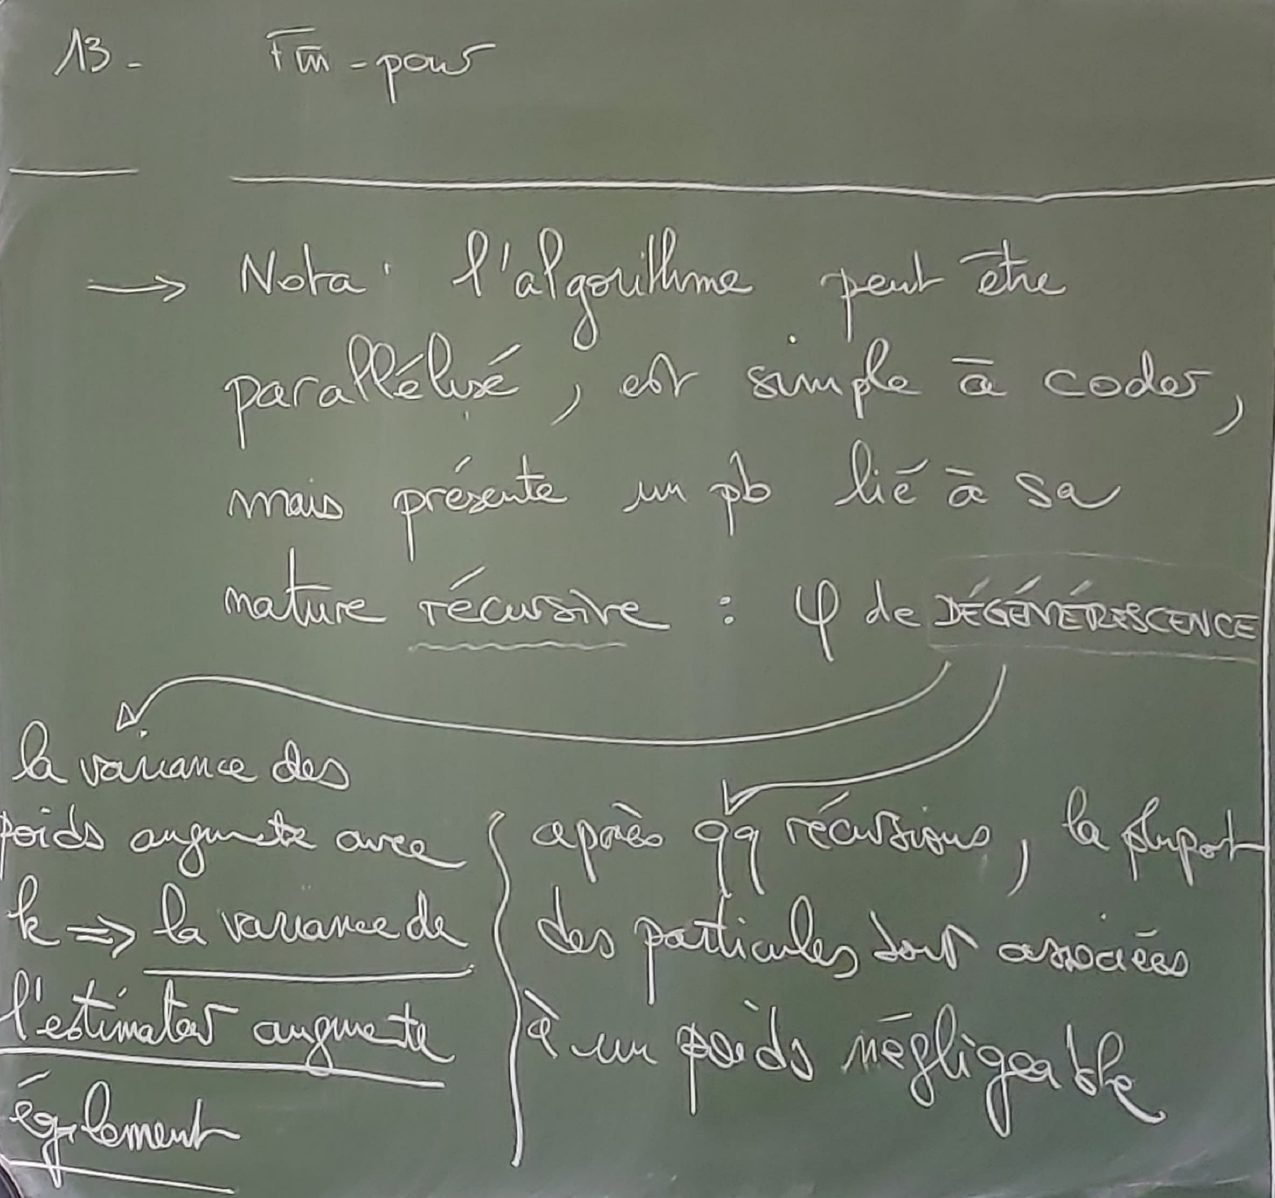 13- Fin-pour
→ Nota : l'algorithme peut être
parallélisé, est simple à coder,
mais présente un pb lié à sa
nature récursive : φ de DÉGÉNÉRESCENCE
la variance des
poids augmente avec
k ⇒ la variance de
l'estimateur augmente
également
après qq récursions, la plupart
des particules sont associées
à un poids négligeable